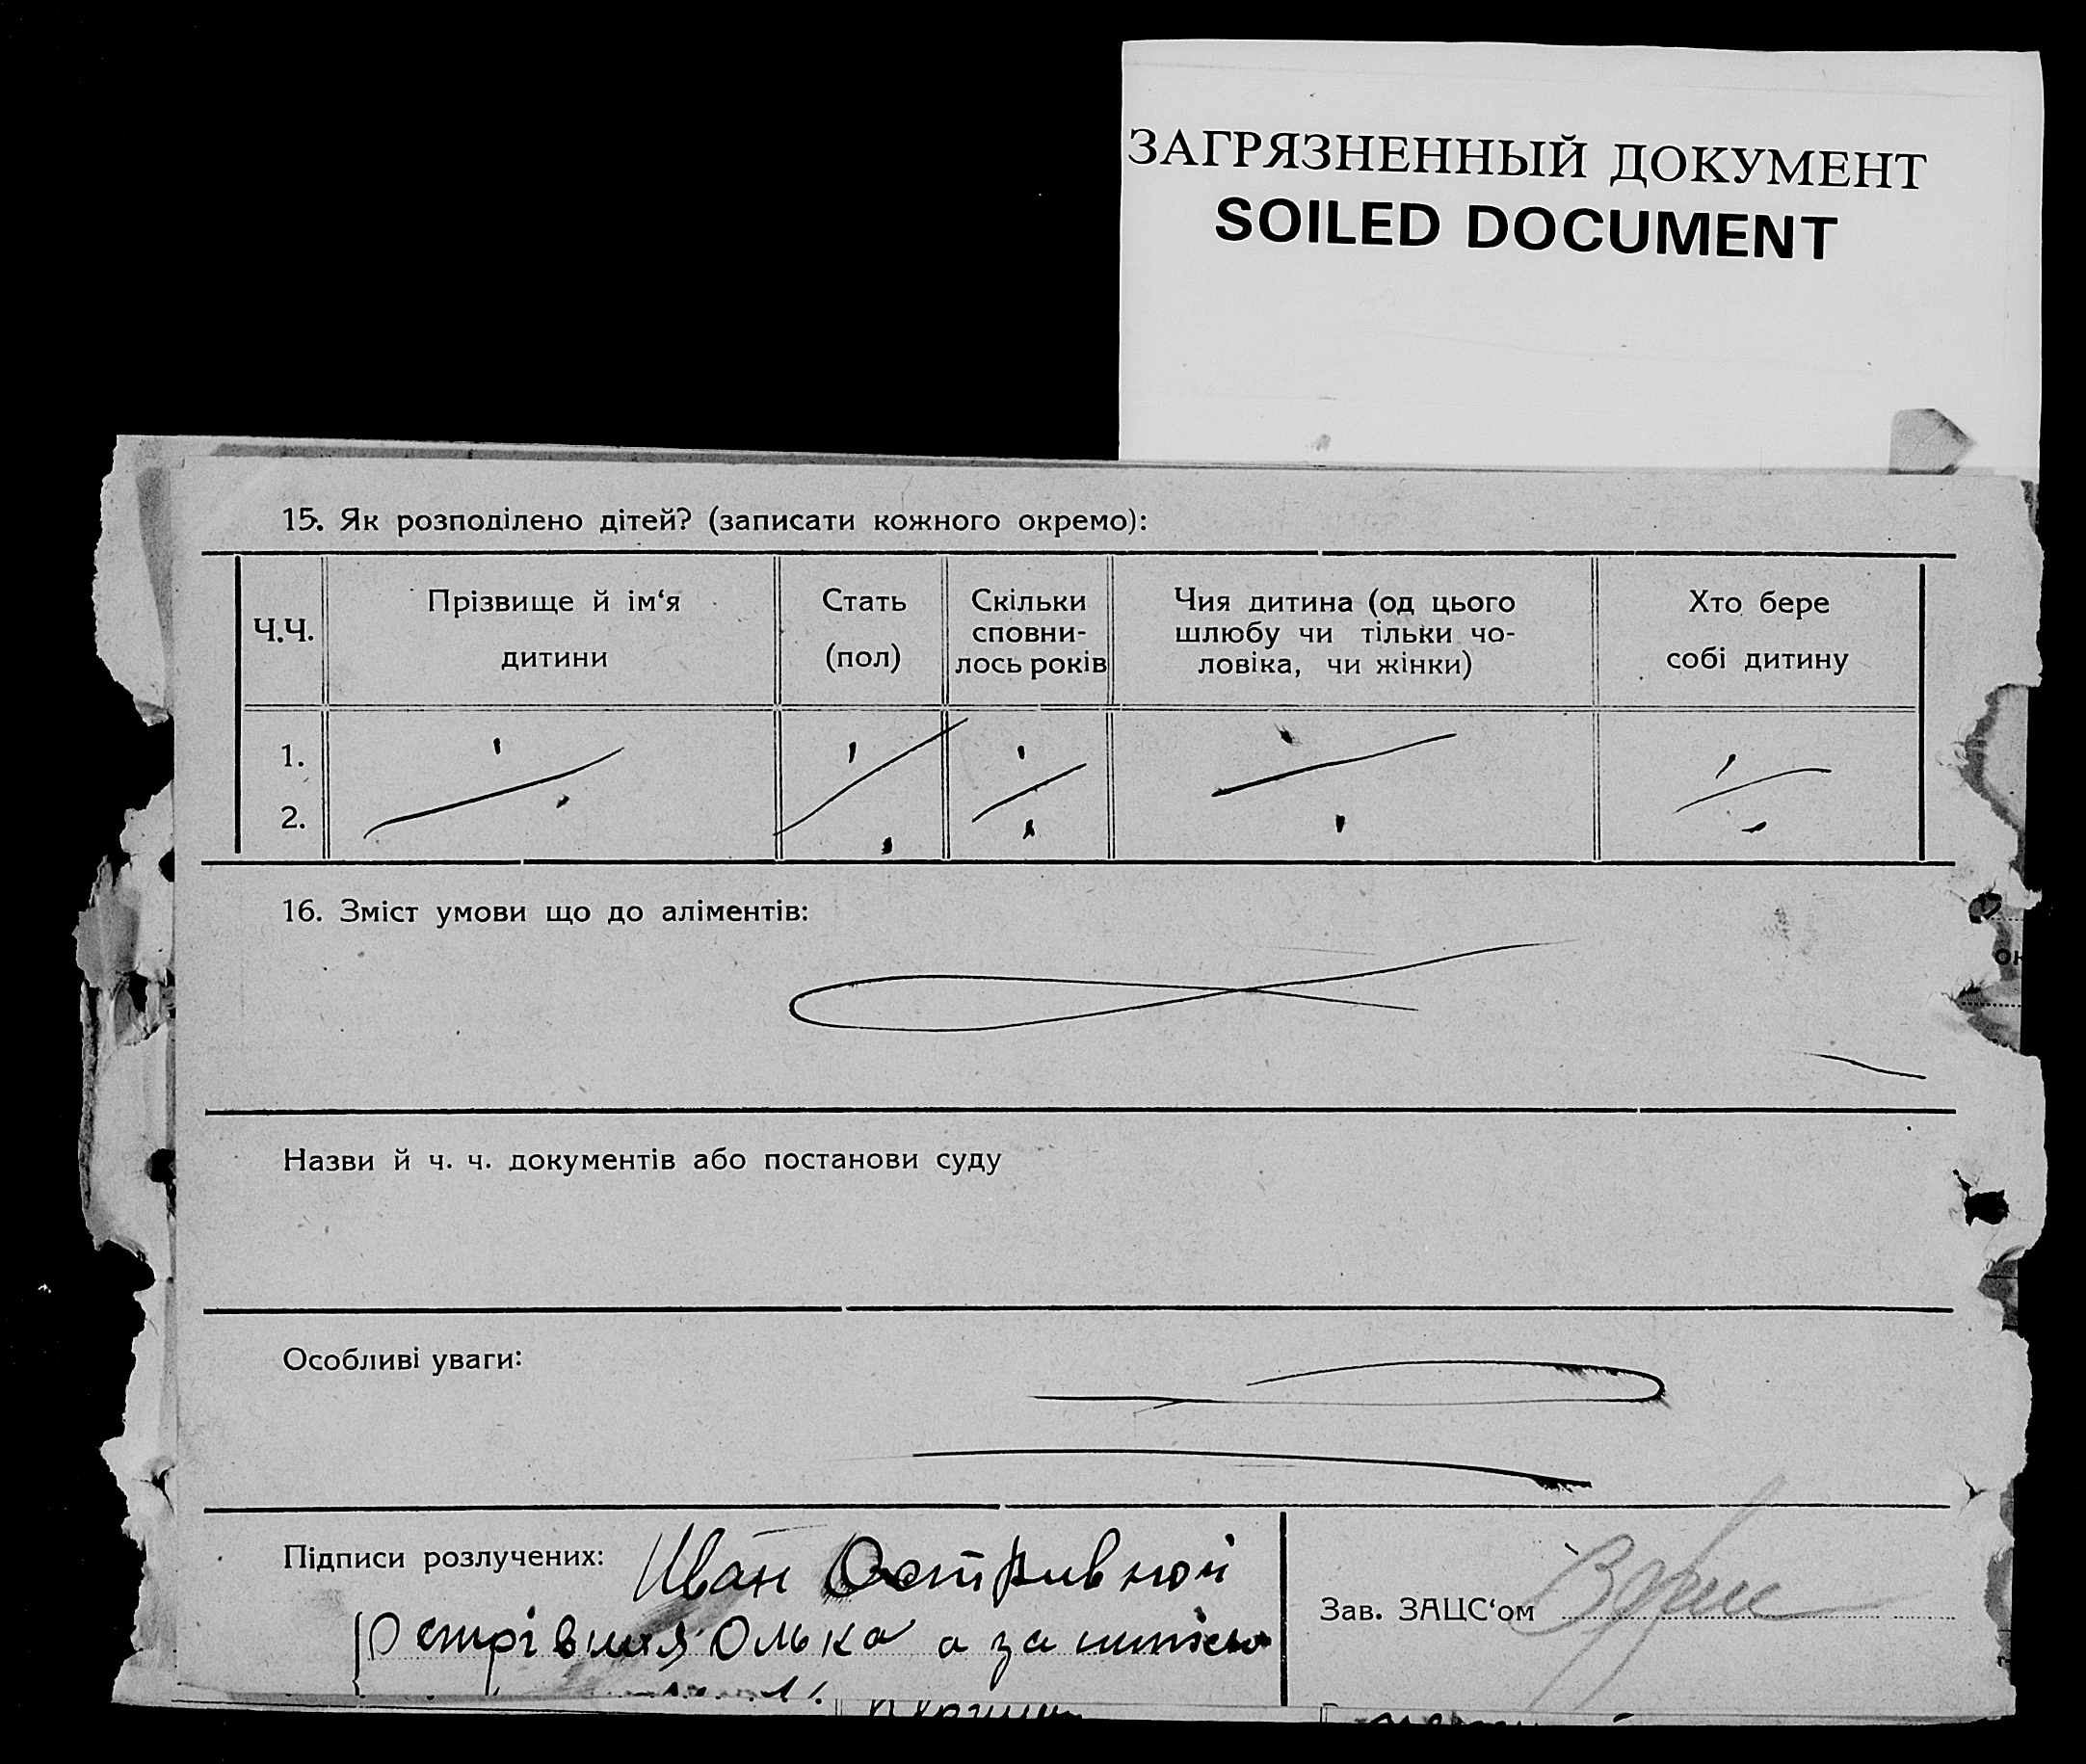 ЗАГРЯЗНЕННЫЙ ДОКУМЕНТ
SOILED DOCUMENT
15. Як розподілено дітей? (записати кожного окремо):
Ч.Ч.
Прізвище й ім‘я
дитини
Стать
(пол)
Скільки
сповни-
лось років
Чия дитина (од цього
шлюбу чи тільки чо-
ловіка, чи жінки)
Хто бере
собі дитину
1.
2.
16. Зміст умови що до аліментів:
Назви й ч. ч. документів або постанови суду
Особливі уваги:
Підписи розлучених: Иван Остривной
Олька а за
Зав. ЗАЦС‘ом